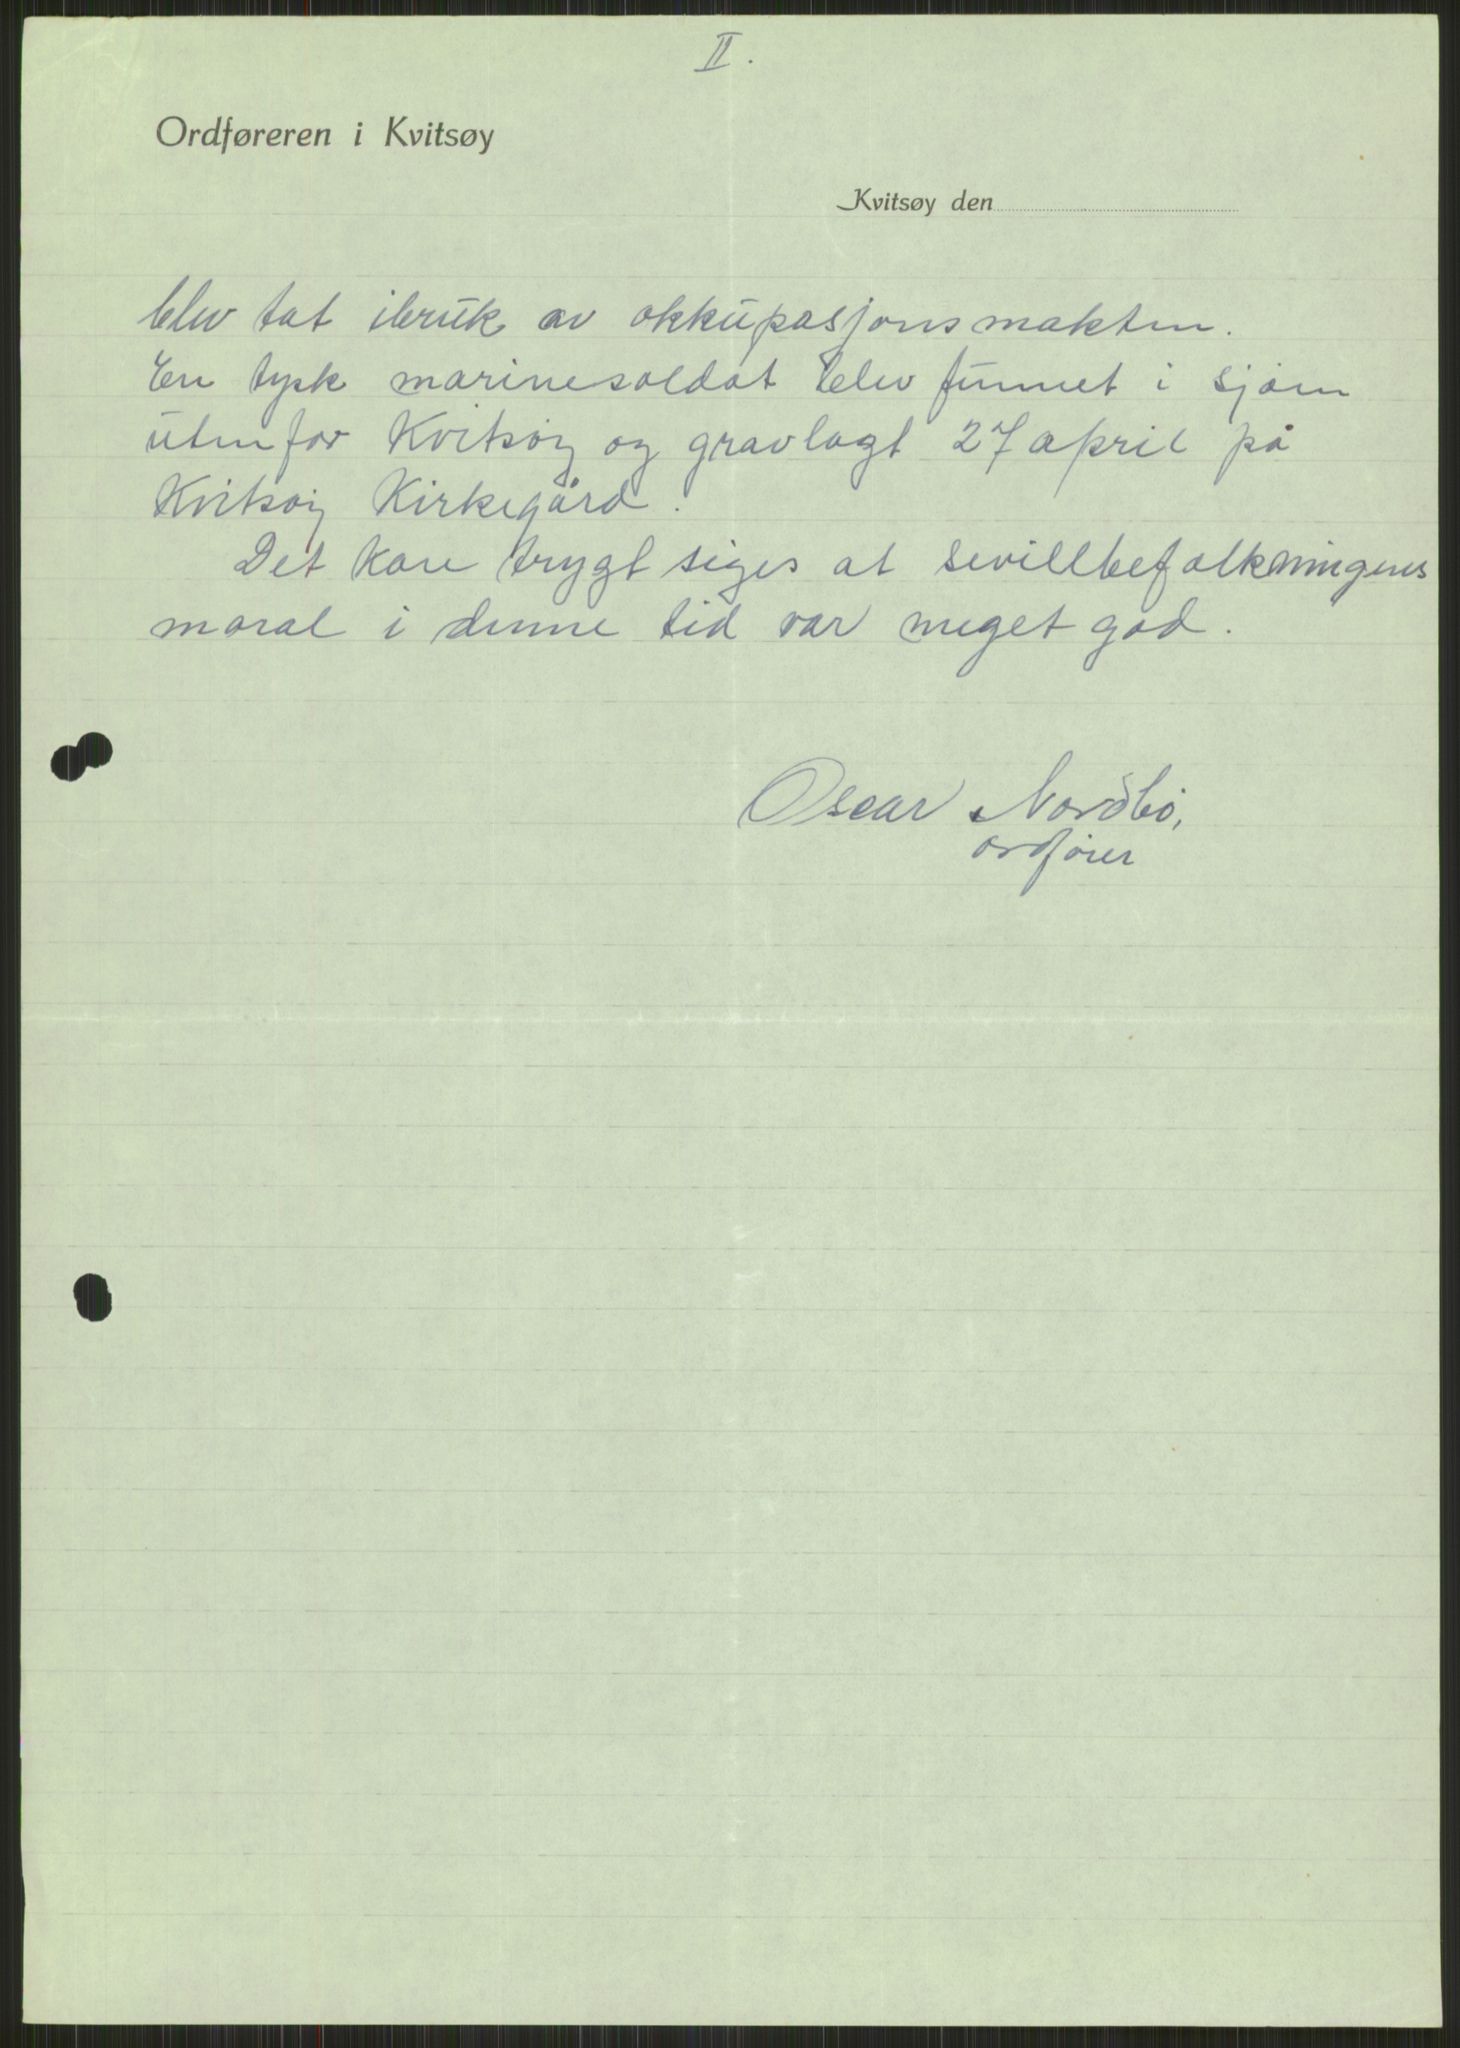 II.
Ordføreren i Kvitsøy
Kvitsøy den
blev tat ibruk av okkupasjonsmakten.
En tysk marinesoldat blev funnet i sjøen
utenfor Kvitsøy og gravlagt 27 april på
Kvitsøy Kirkegård.
Det kan trygt siges at sevillbefolkningens
moral i denne tid var meget god.
Oscar Nordbø,
ordfører